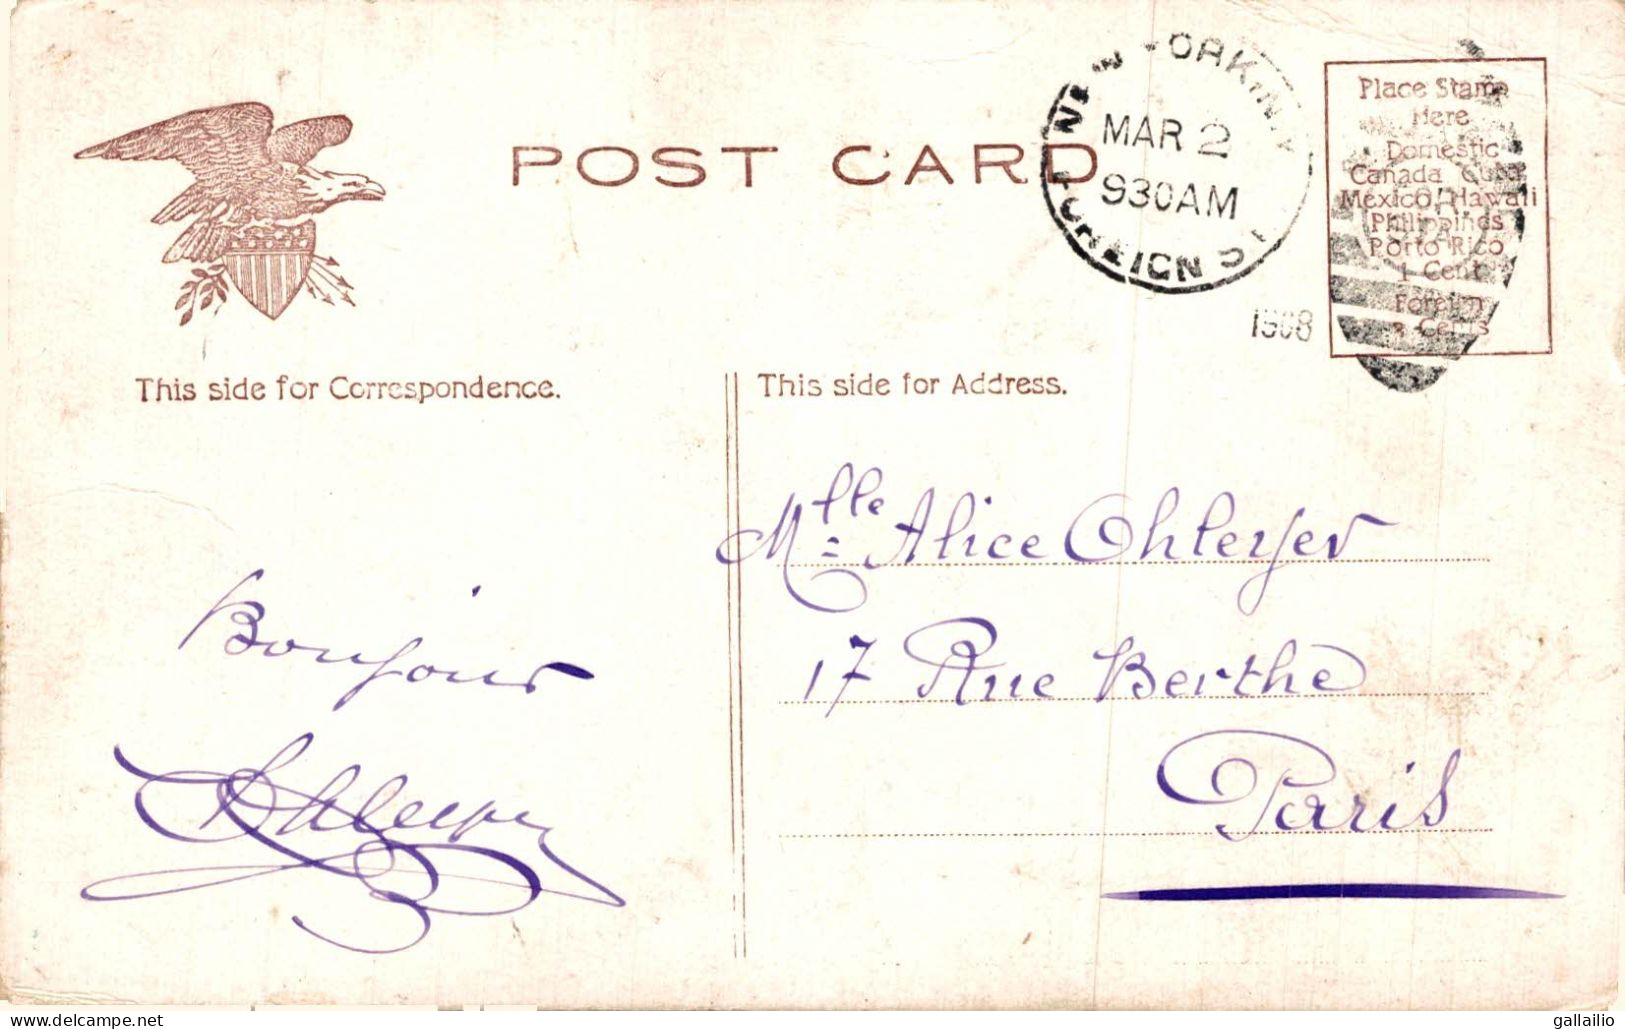 POST CARD
NEW YORK, N.Y.
MAR 2
930AM
FOREIGN ST
1908
Place Stamp
Here
Domestic
Canada, Cuba
Mexico, Hawaii
Philippines
Porto Rico
1 Cent
Foreign
2 Cents
This side for Correspondence.
This side for Address.
Mlle Alice Ohleyer
17 Rue Berthe
Paris
Bonjour
www.delcampe.net
gallailio